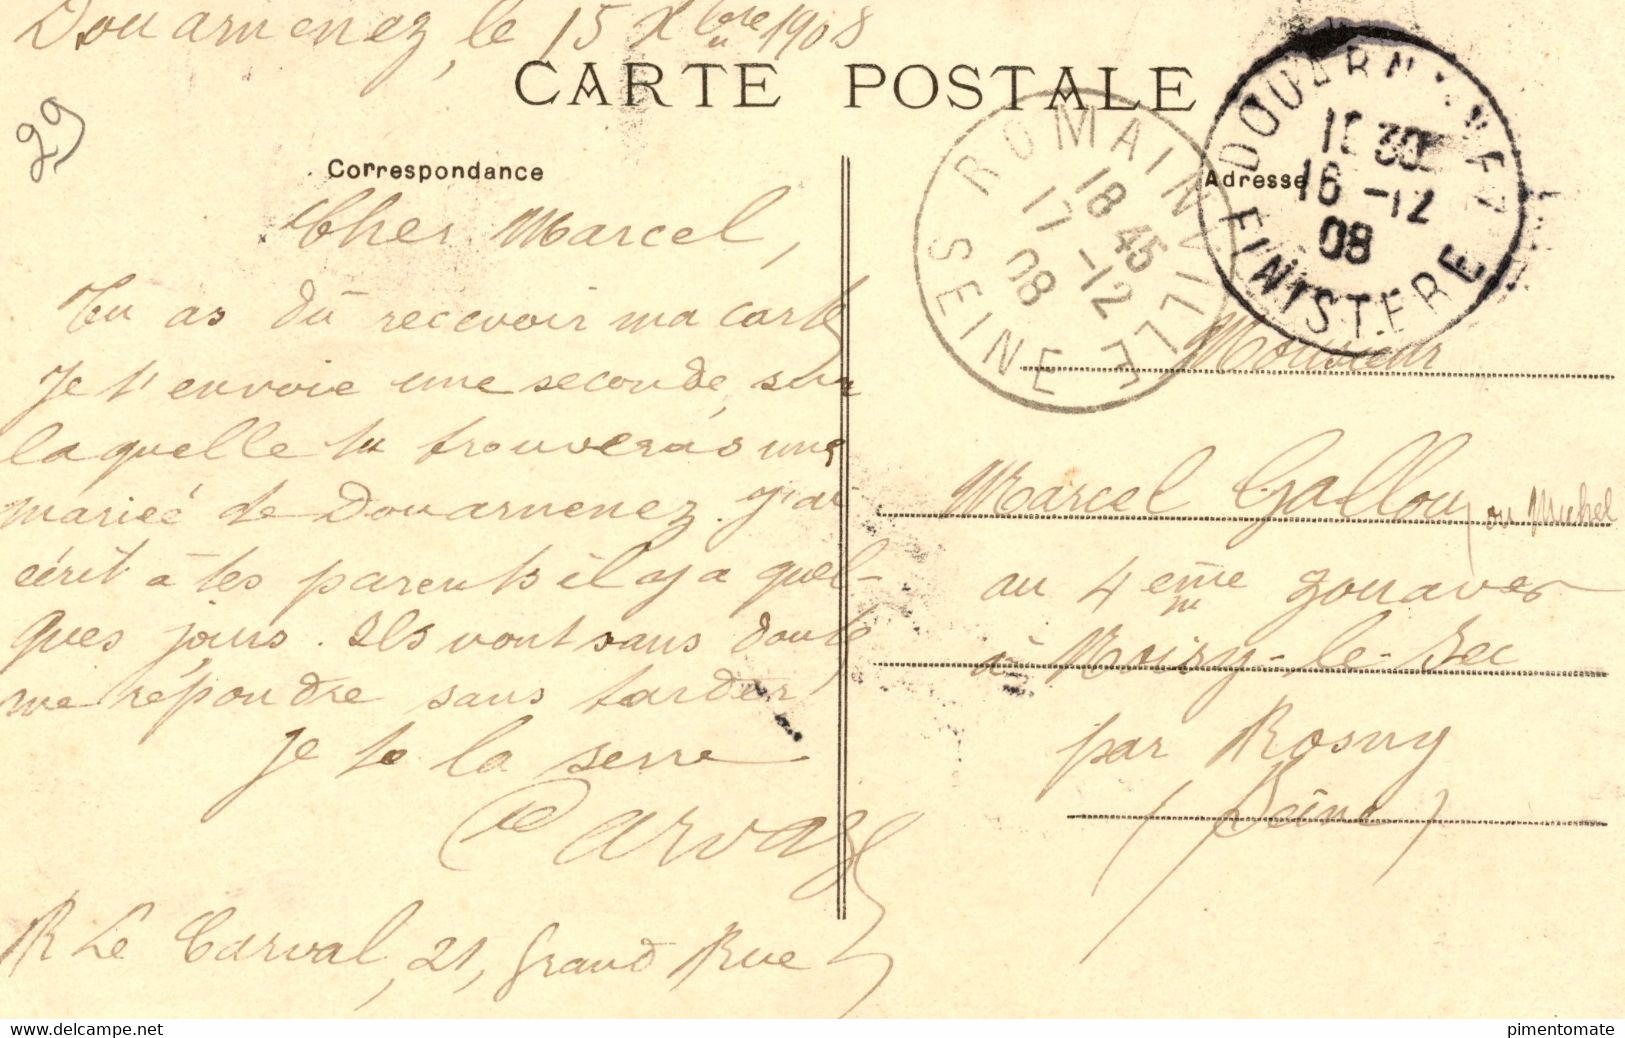 Douarnenez, le 15 Xbre 1908
CARTE POSTALE
29
Correspondance
Cher Marcel,
Tu as dû recevoir ma carte
Je t'envoie une seconde, sur
laquelle tu trouveras une
mariée de Douarnenez. J'ai
écrit à tes parents il y a quel-
ques jours. Ils vont sans doute
me répondre sans tarder
Je te la serre
R Le Carval, 21, Grand Rue
ROMAINVILLE
18 45
17 -12
08
SEINE
DOUARNENEZ
30
16 -12
08
FINISTERE
Adresse
Monsieur
Marcel Gallou, ou Michel
au 4eme zouaves
à Noisy-le-Sec
par Rosny
(Seine)
delcampe.net
pimentomate